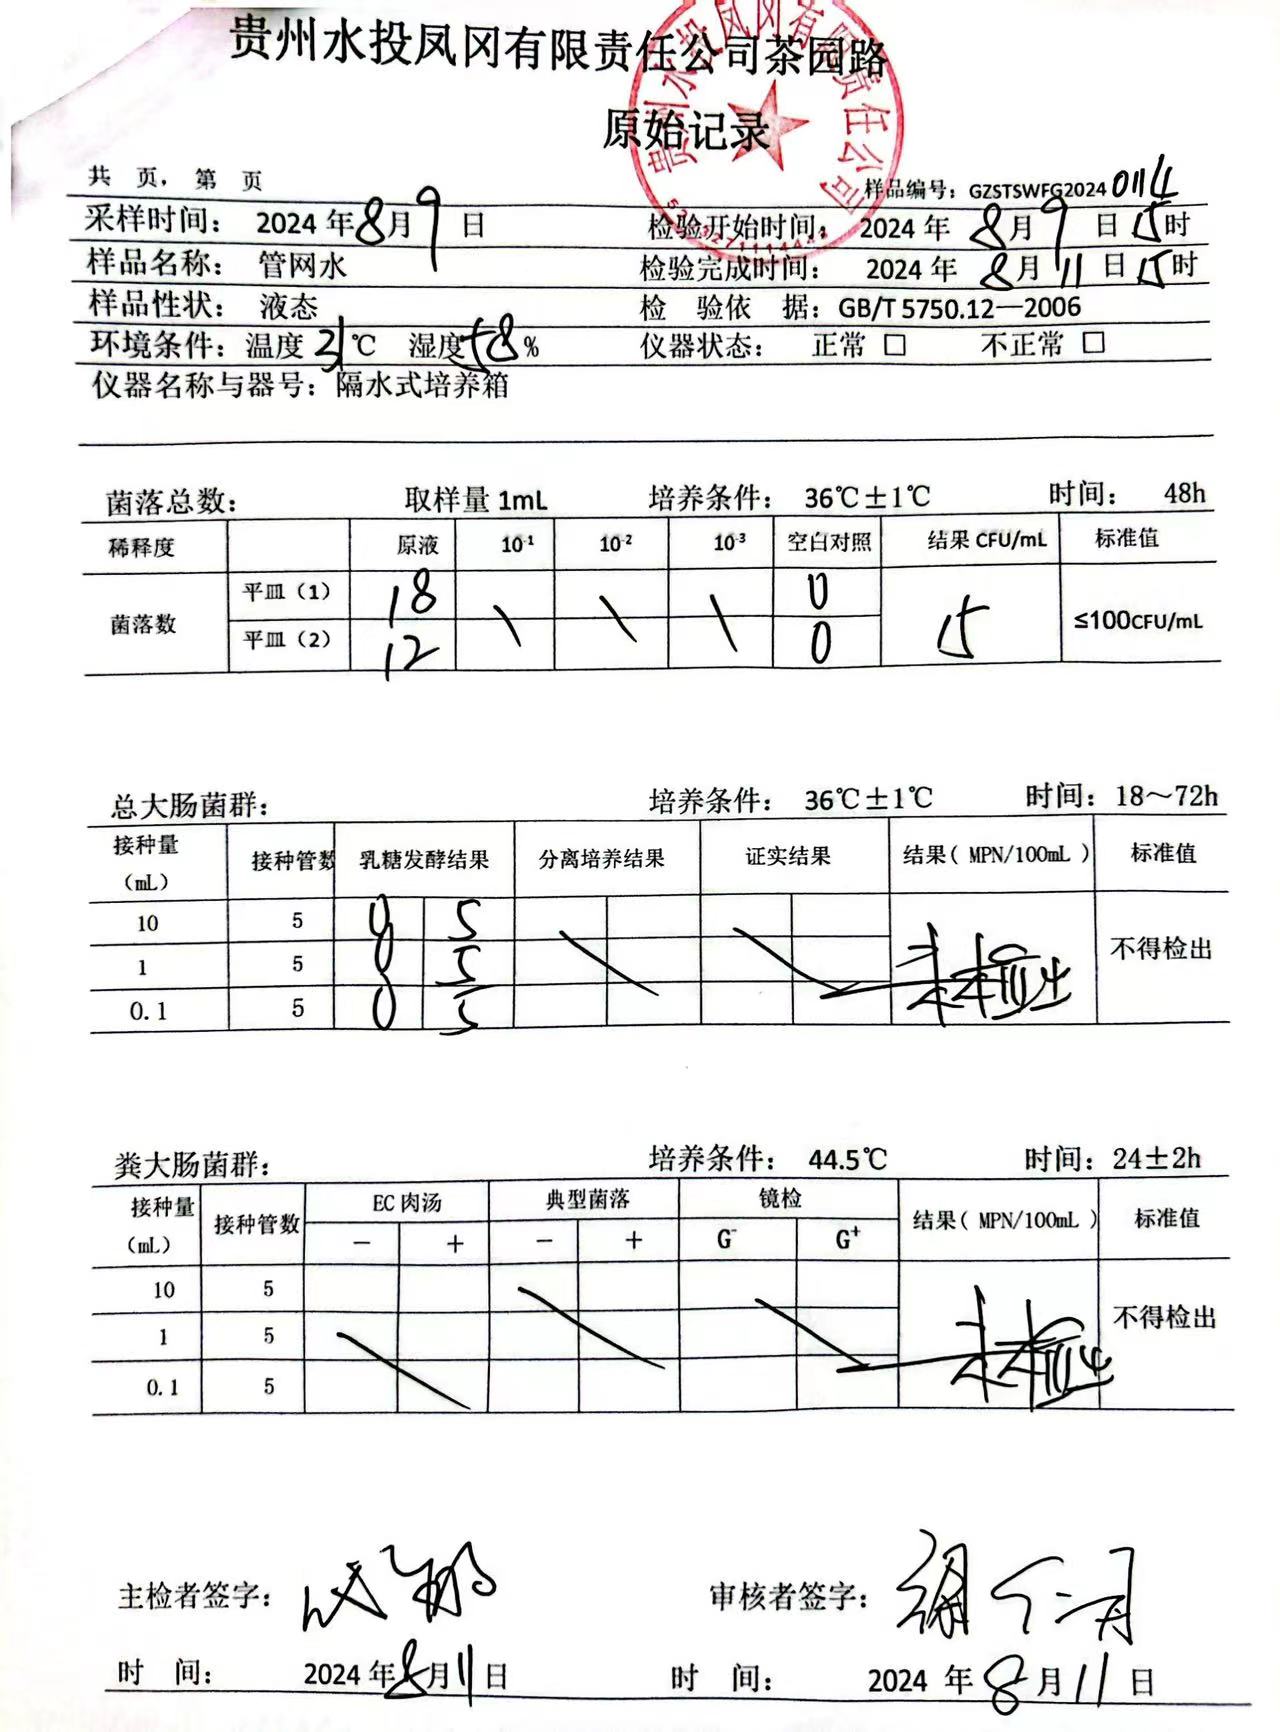 贵州水投凤冈有限责任公司茶园路
原始记录
贵州水投凤冈有限责任公司
共 页，第 页 样品编号：GZSTSWFG20240114
采样时间： 2024年8月9日 检验开始时间： 2024年8月9日15时
样品名称： 管网水 检验完成时间： 2024年8月11日15时
样品性状： 液态 检 验依 据：GB/T 5750.12—2006
环境条件：温度31℃ 湿度58% 仪器状态： 正常 □ 不正常 □
仪器名称与器号：隔水式培养箱
菌落总数： 取样量 1mL 培养条件： 36℃±1℃ 时间： 48h
稀释度 原液 10-1 10-2 10-3 空白对照 结果 CFU/mL 标准值
菌落数 平皿（1） 18 \ \ \ 0 15 ≤100CFU/mL
平皿（2） 12 0
总大肠菌群： 培养条件： 36℃±1℃ 时间：18～72h
接种量（mL） 接种管数 乳糖发酵结果 分离培养结果 证实结果 结果( MPN/100mL ) 标准值
10 5 0 5 未检出 不得检出
1 5 0 5
0.1 5 0 5
粪大肠菌群： 培养条件： 44.5℃ 时间：24±2h
接种量（mL） 接种管数 EC 肉汤 典型菌落 镜检 结果( MPN/100mL ) 标准值
− + − + G- G+
10 5 未检出 不得检出
1 5
0.1 5
主检者签字： 审核者签字：
时 间： 2024年8月11日 时 间： 2024 年8月11日